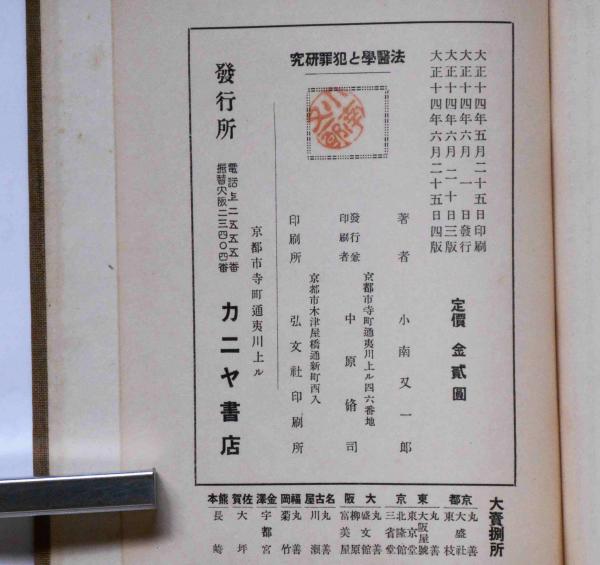 法醫學と犯罪研究
大正十四年五月二十五日印刷
大正十四年六月一日發行
大正十四年六月二十日三版
大正十四年六月二十五日四版
定價 金貳圓
著者 小南又一郎
京都市寺町通夷川上ル四六番地
發行兼印刷者 中原脩司
京都市木津屋橋通新町西入
印刷所 弘文社印刷所
京都市寺町通夷川上ル
發行所 カニヤ書店
電話上二五五五番
振替大阪二三四〇四番
小南又一郎
大賣捌所
京都 丸善 大盛社 東枝
東京 丸善 大阪屋號 東京堂 北隆館 三省堂
大阪 丸善 盛文館 柳原 富美屋
名古屋 丸善 川瀬
福岡 丸善 菊竹
金澤 宇都宮
佐賀 大坪
熊本 長崎